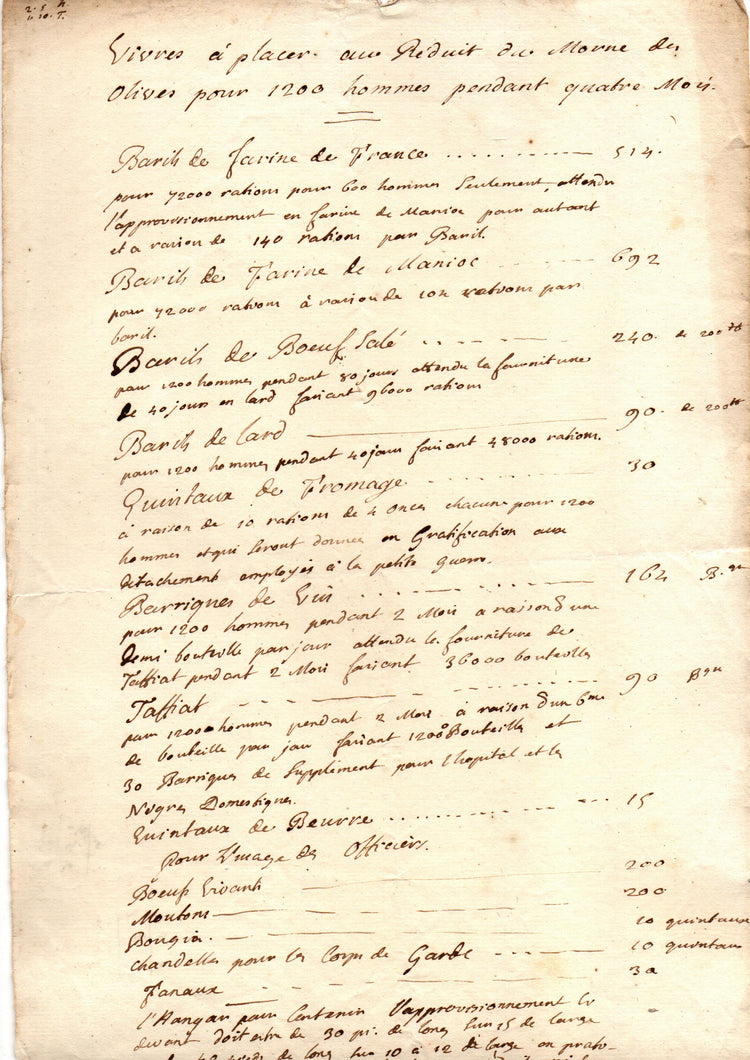 2. 5 4
1. 10. T.
Vivres à placer au Réduit du Morne des
Olives pour 1200 hommes pendant quatre Mois.
Barils de farine de France .......... 514.
pour 72000 rations pour 600 hommes Seulement, attendu
l'approvisionnement en farine de Manioc pour autant
et a raison de 140 rations par Baril.
Barils de Farine de Manioc 692
pour 72000 rations à raison de 104 rations par
baril.
Barils de Boeuf Salé 240. de 200 tt
pour 1200 hommes pendant 80 jours attendu la fourniture
de 40 jours en lard faisant 96000 rations
Barils de lard 90. de 200 tt
pour 1200 hommes pendant 40 jours faisant 48000 rations.
Quintaux de Fromage 30
à raison de 10 rations de 4 onces chacune pour 1200
hommes et qui seront données en Gratification aux
détachement employés à la petite Guerre.
Barriques de Vin 162 B.ques
pour 1200 hommes pendant 2 Mois a raison d'une
demi bouteille par jour attendu la fourniture de
Taffiat pendant 2 Mois faisant 36000 bouteilles
Taffiat 90 Bques
pour 1200 hommes pendant 2 Mois à raison d'un 6me
de bouteille par jour faisant 12000 Bouteilles et
30 Barriques de Supplément pour l'hopital et les
Negres Domestiques.
Quintaux de Beurre 15
Pour l'usage des Officiers.
Boeufs Vivants 200
Moutons 200
Bougie. 10 quintaux
chandelles pour les Corps de Garde 10 quintaux
Fanaux 30
l'Hangar pour Contenir l'approvisionnement Ci
devant doit etre de 30 pi. de long sur 15 de large
pieds de long sur 10 à 12 de large en